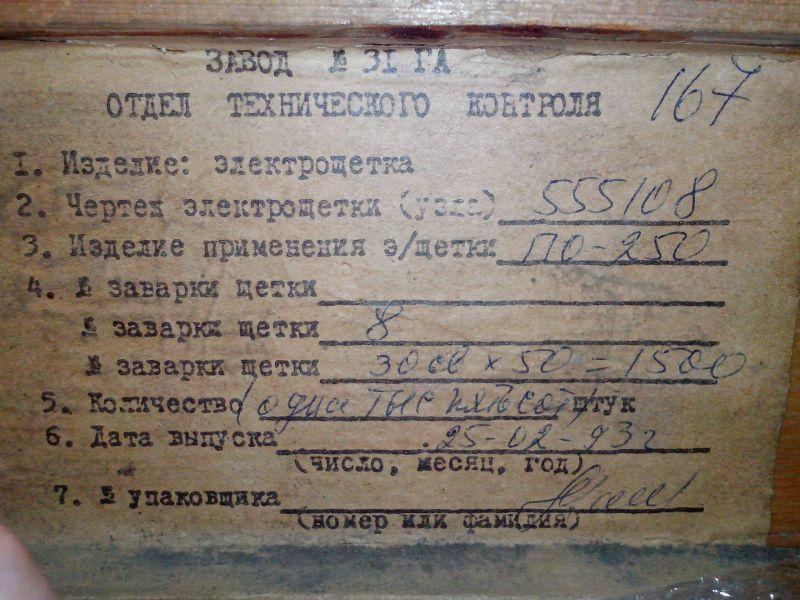 ЗАВОД № 31 ГА
ОТДЕЛ ТЕХНИЧЕСКОГО КОНТРОЛЯ 167
1. Изделие: электрощетка
2. Чертеж электрощетки (узла) 555108
3. Изделие применения э/щетки ПО-250
4. № заварки щетки
№ заварки щетки 8
№ заварки щетки 30 св х 50 = 1500
5. Количество (одна тыс пятьсот) штук
6. Дата выпуска 25-02-93г
(число, месяц, год)
7. № упаковщика
(номер или фамилия)